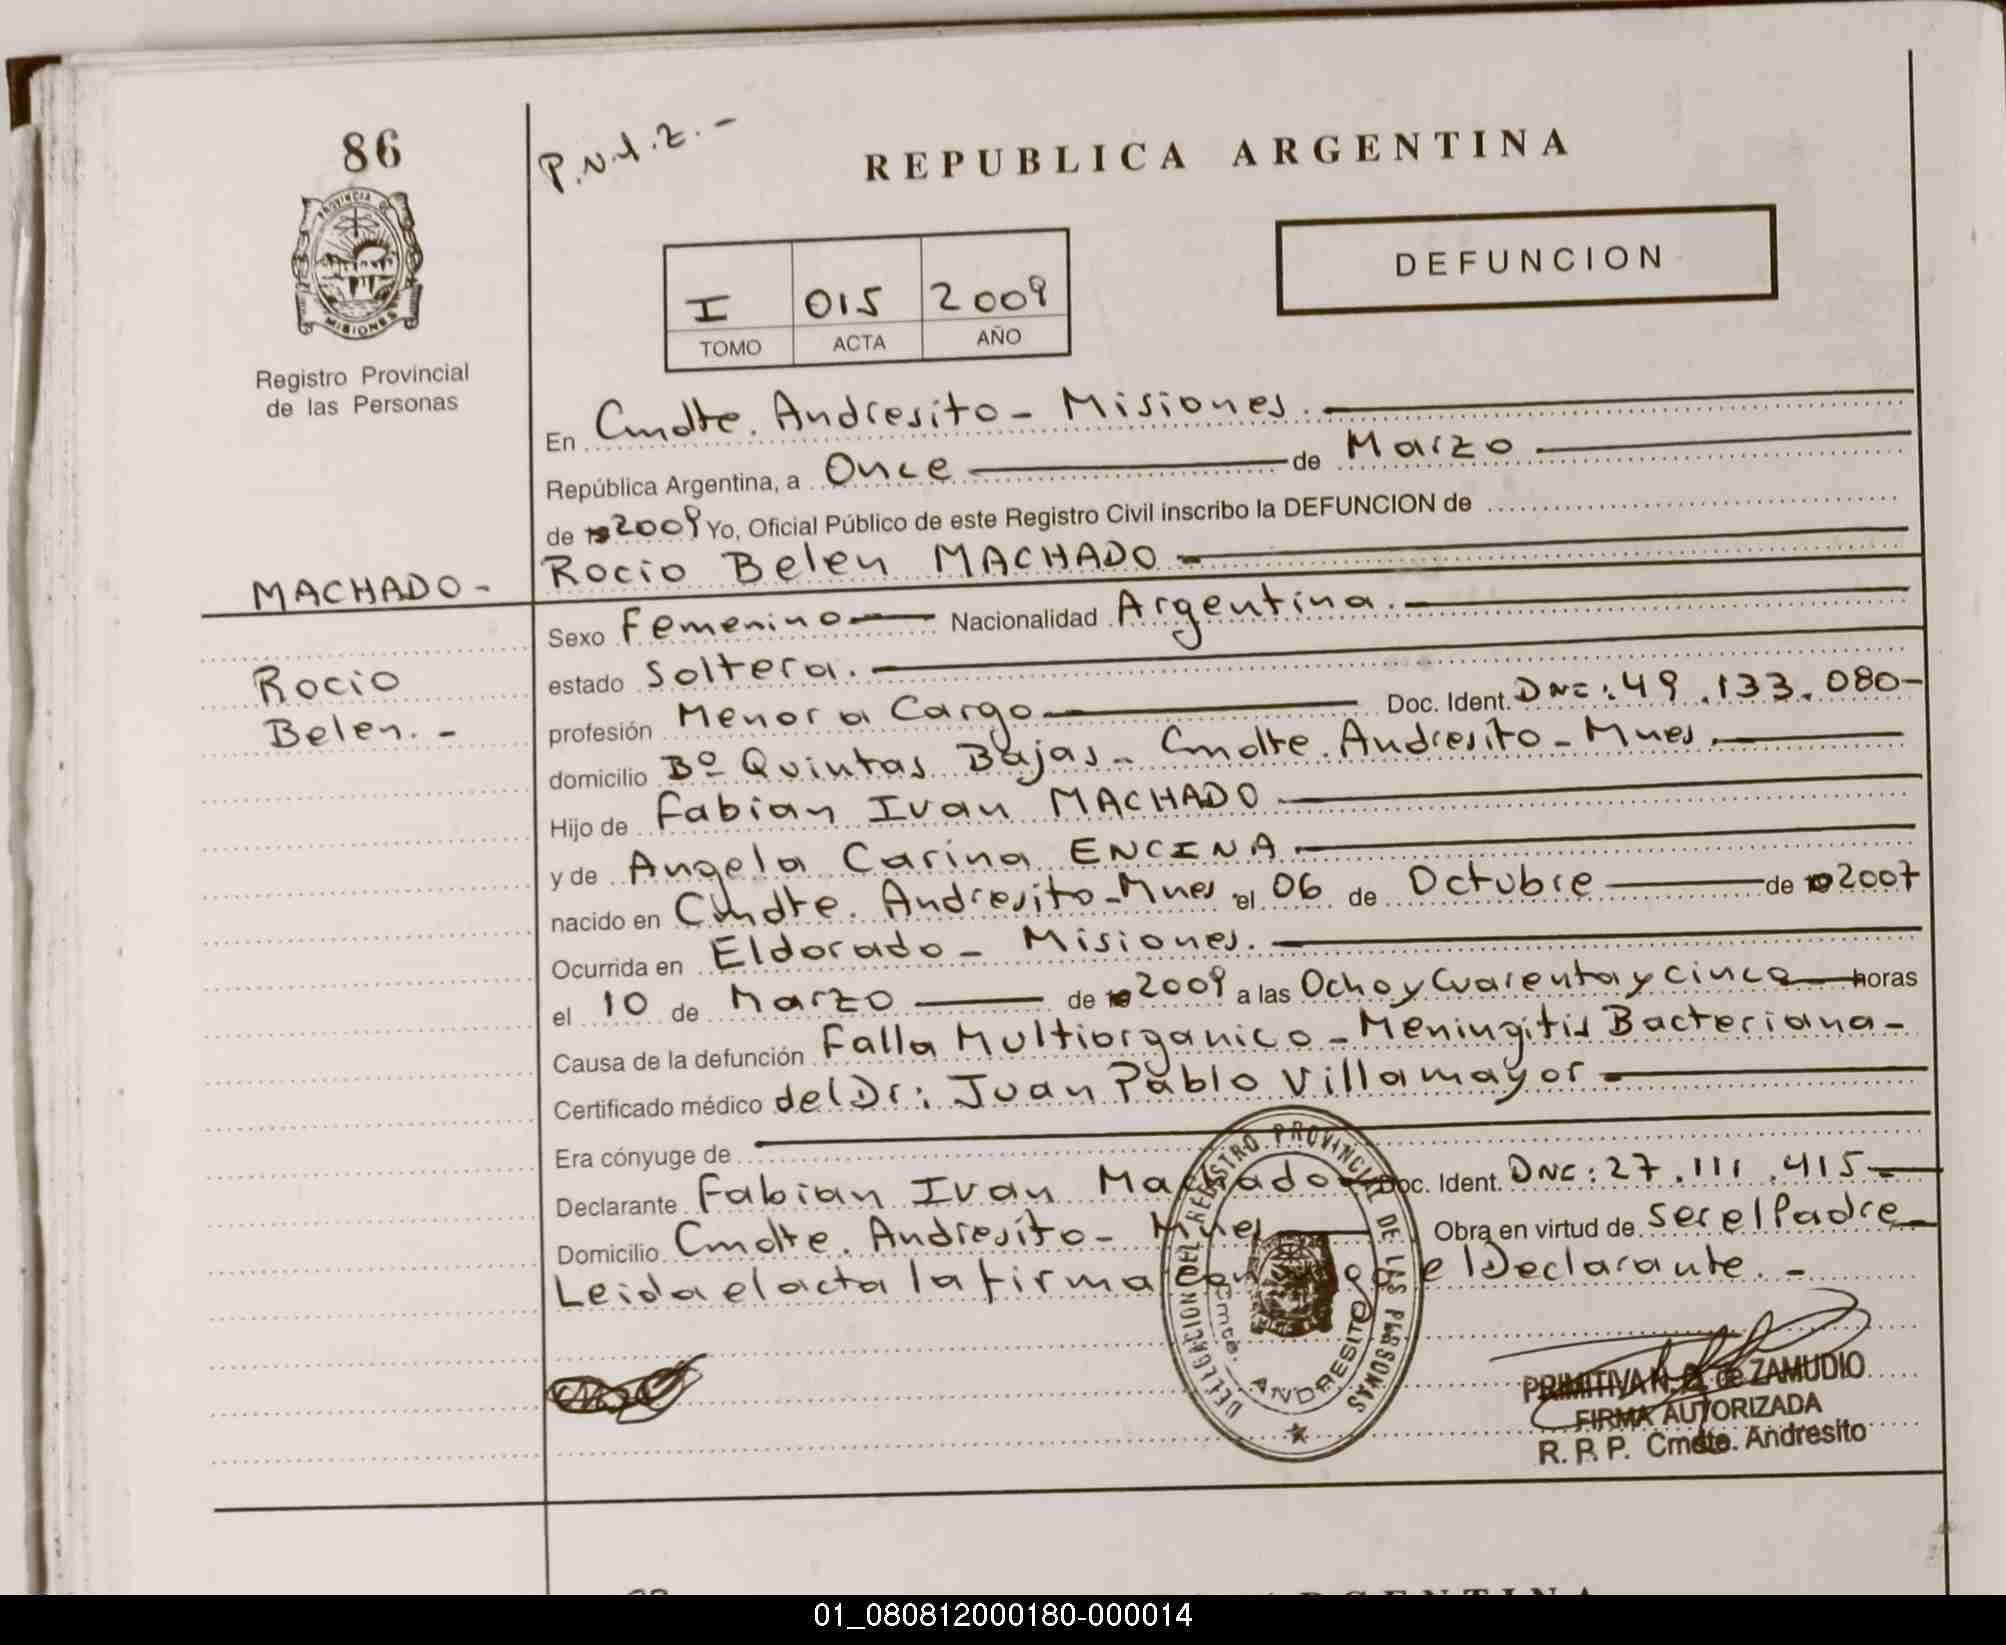 86
P.N.1.2.-
REPUBLICA ARGENTINA
PROVINCIA DE
MISIONES
Registro Provincial
de las Personas
DEFUNCION
I 015 2009
TOMO ACTA AÑO
En Cmdte. Andresito - Misiones.
República Argentina, a Once de Marzo
de 2009 Yo, Oficial Público de este Registro Civil inscribo la DEFUNCION de
MACHADO - Rocio Belen MACHADO -
Sexo Femenino Nacionalidad Argentina.
Rocio
estado Soltera.
Belen. -
profesión Menor a Cargo Doc. Ident. DNI: 49.133.080-
domicilio Bº Quintas Bajas - Cmdte. Andresito - Mnes.
Hijo de Fabian Ivan MACHADO
y de Angela Carina ENCINA
nacido en Cmdte. Andresito - Mnes el 06 de Octubre de 2007
Ocurrida en Eldorado - Misiones.
el 10 de Marzo de 2009 a las Ocho y Cuarenta y cinco horas
Causa de la defunción Falla Multiorganico - Meningitis Bacteriana -
Certificado médico del Dr: Juan Pablo Villamayor
Era cónyuge de
Declarante Fabian Ivan Machado Doc. Ident. DNI: 27.111.415-
Domicilio Cmdte. Andresito - Mnes Obra en virtud de ser el Padre
Leida el acta la firma conmigo el Declarante. -
DELEGACION DEL REGISTRO PROVINCIAL DE LAS PERSONAS
Cmte. ANDRESITO
PRIMITIVA N. de ZAMUDIO
FIRMA AUTORIZADA
R. P. P. Cmdte. Andresito
ARGENTINA
01_080812000180-000014